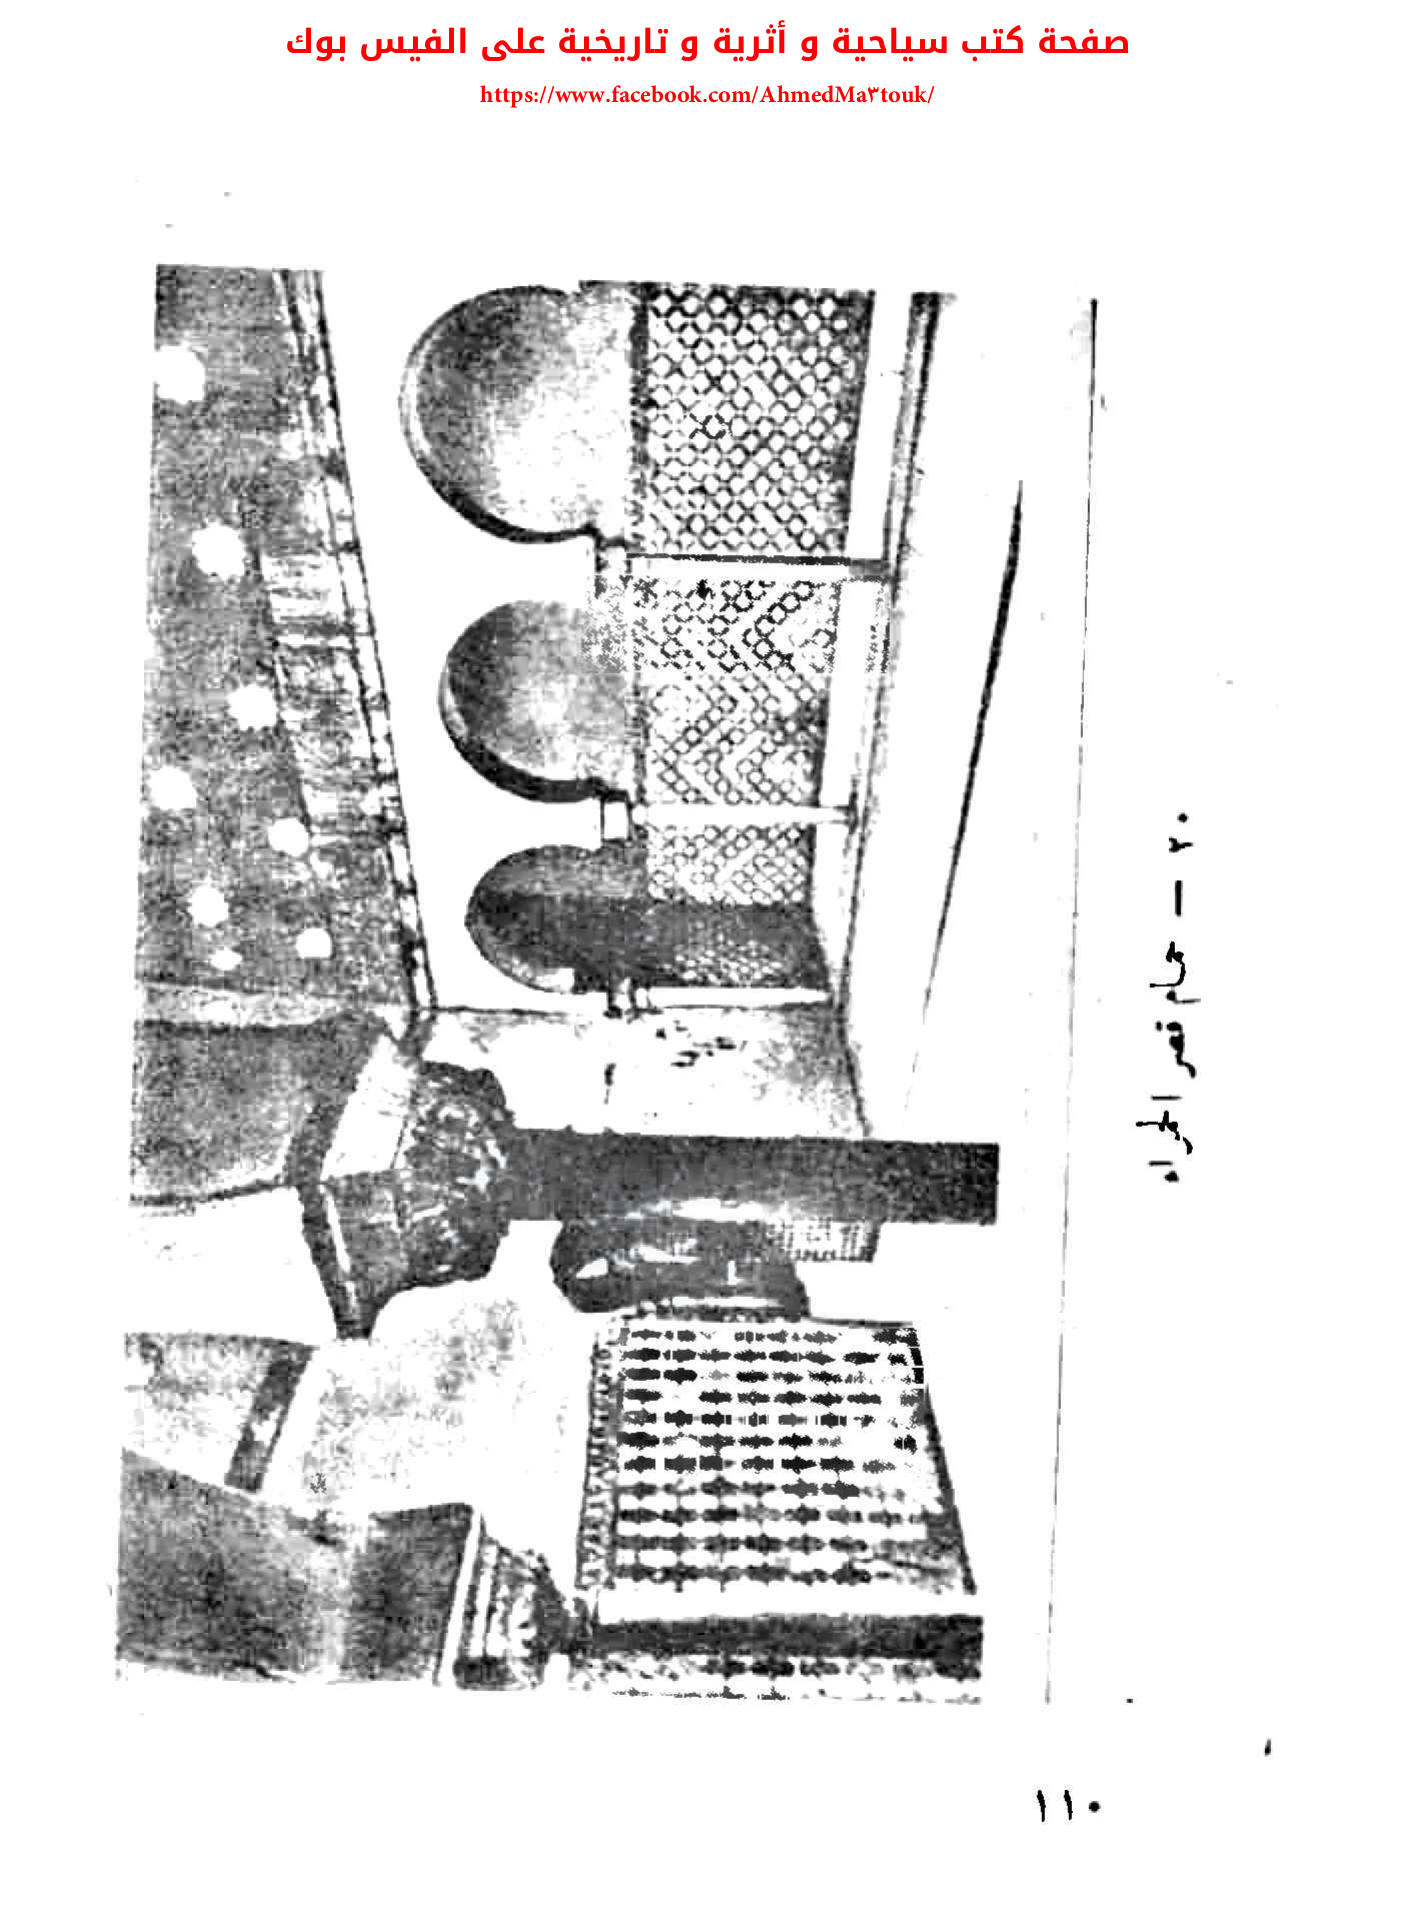 صفحة كتب سياحية و أثرية و تاريخية على الفيس بوك
https://www.facebook.com/AhmedMa٣touk/
٢٠ — حمام قصر الحمراء
١١٠